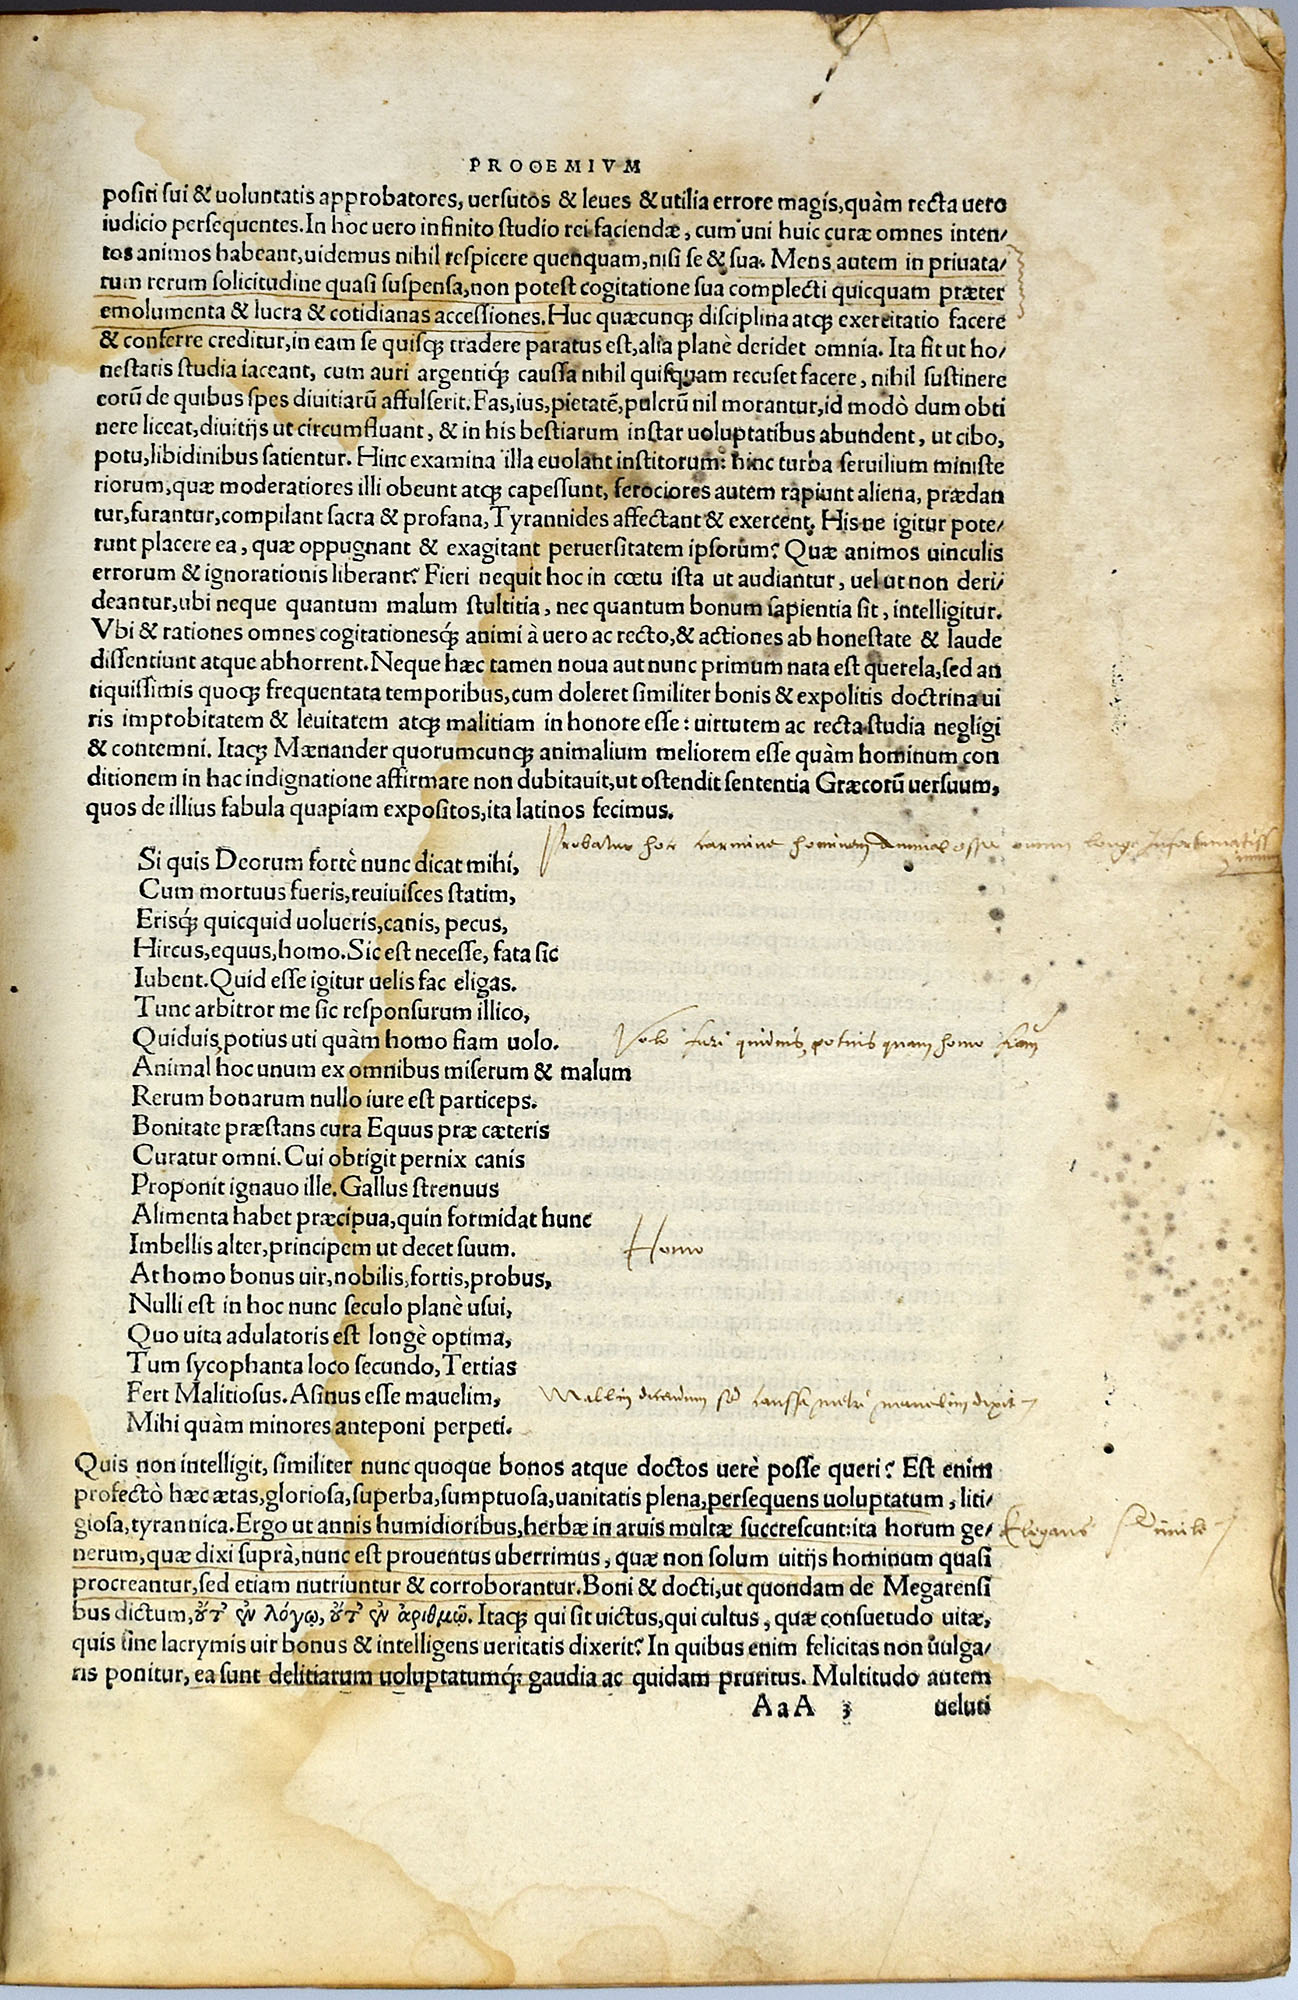 PROOEMIVM
positi sui & uoluntatis approbatores, uersutos & leues & utilia errore magis, quàm recta uero
iudicio persequentes. In hoc uero infinito studio rei faciendæ, cum uni huic curæ omnes inten/
tos animos habeant, uidemus nihil respicere quenquam, nisi se & sua. Mens autem in priuata/
rum rerum solicitudine quasi suspensa, non potest cogitatione sua complecti quicquam præter
emolumenta & lucra & cotidianas accessiones. Huc quæcunqꝫ disciplina atqꝫ exercitatio facere
& conferre creditur, in eam se quisqꝫ tradere paratus est, alia planè deridet omnia. Ita fit ut ho/
nestatis studia iaceant, cum auri argentiqꝫ́ caussa nihil quisquam recuset facere, nihil sustinere
eorũ de quibus spes diuitiarũ affulserit. Fas, ius, pietatẽ, pulcrũ nil morantur, id modò dum obti
nere liceat, diuitijs ut circumfluant, & in his bestiarum instar uoluptatibus abundent, ut cibo,
potu, libidinibus satientur. Hinc examina illa euolant institorum: hinc turba seruilium ministe
riorum, quæ moderatiores illi obeunt atqꝫ capessunt, ferociores autem rapiunt aliena, prædan
tur, furantur, compilant sacra & profana, Tyrannides affectant & exercent. His ne igitur pote/
runt placere ea, quæ oppugnant & exagitant peruersitatem ipsorum? Quæ animos uinculis
errorum & ignorationis liberant? Fieri nequit hoc in cœtu ista ut audiantur, uel ut non deri/
deantur, ubi neque quantum malum stultitia, nec quantum bonum sapientia sit, intelligitur.
Vbi & rationes omnes cogitationesqꝫ́ animi à uero ac recto, & actiones ab honestate & laude
dissentiunt atque abhorrent. Neque hæc tamen noua aut nunc primum nata est querela, sed an
tiquissimis quoqꝫ frequentata temporibus, cum doleret similiter bonis & expolitis doctrina ui
ris improbitatem & leuitatem atqꝫ malitiam in honore esse: uirtutem ac recta studia negligi
& contemni. Itaqꝫ Mænander quorumcunqꝫ animalium meliorem esse quàm hominum con
ditionem in hac indignatione affirmare non dubitauit, ut ostendit sententia Græcorũ uersuum,
quos de illius fabula quapiam expositos, ita latinos fecimus.
Probatur hoc carmine hominem Animal esse omnium longe Infortunatiss
imum
Si quis Deorum fortè nunc dicat mihi,
Cum mortuus fueris, reuiuisces statim,
Erisqꝫ́ quicquid uolueris, canis, pecus,
Hircus, equus, homo. Sic est necesse, fata sic
Iubent. Quid esse igitur uelis fac eligas.
Tunc arbitror me sic responsurum illico,
Quiduis potius uti quàm homo fiam uolo.
Volo fieri quiduis potius quam homo fiam
Animal hoc unum ex omnibus miserum & malum
Rerum bonarum nullo iure est particeps.
Bonitate præstans cura Equus præ cæteris
Curatur omni. Cui obtigit pernix canis
Proponit ignauo ille. Gallus strenuus
Alimenta habet præcipua, quin formidat hunc
Imbellis alter, principem ut decet suum.
Homo
At homo bonus uir, nobilis, fortis, probus,
Nulli est in hoc nunc seculo planè usui,
Quo uita adulatoris est longè optima,
Tum sycophanta loco secundo, Tertias
Fert Malitiosus. Asinus esse mauelim,
Mallim dicendum sed caussa metri mauelim dixit
Mihi quàm minores anteponi perpeti.
Quis non intelligit, similiter nunc quoque bonos atque doctos uerè posse queri? Est enim
profectò hæc ætas, gloriosa, superba, sumptuosa, uanitatis plena, persequens uoluptatum, liti/
giosa, tyrannica. Ergo ut annis humidioribus, herbæ in aruis multæ succrescunt: ita horum ge/
Elegans Simile
nerum, quæ dixi suprà, nunc est prouentus uberrimus, quæ non solum uitijs hominum quasi
procreantur, sed etiam nutriuntur & corroborantur. Boni & docti, ut quondam de Megarensi
bus dictum, οὔτ' ἐν λόγῳ, οὔτ' ἐν ἀριθμῷ. Itaqꝫ qui sit uictus, qui cultus, quæ consuetudo uitæ,
quis sine lacrymis uir bonus & intelligens ueritatis dixerit? In quibus enim felicitas non uulga/
ris ponitur, ea sunt delitiarum uoluptatumqꝫ́ gaudia ac quidam pruritus. Multitudo autem
AaA 3 ueluti